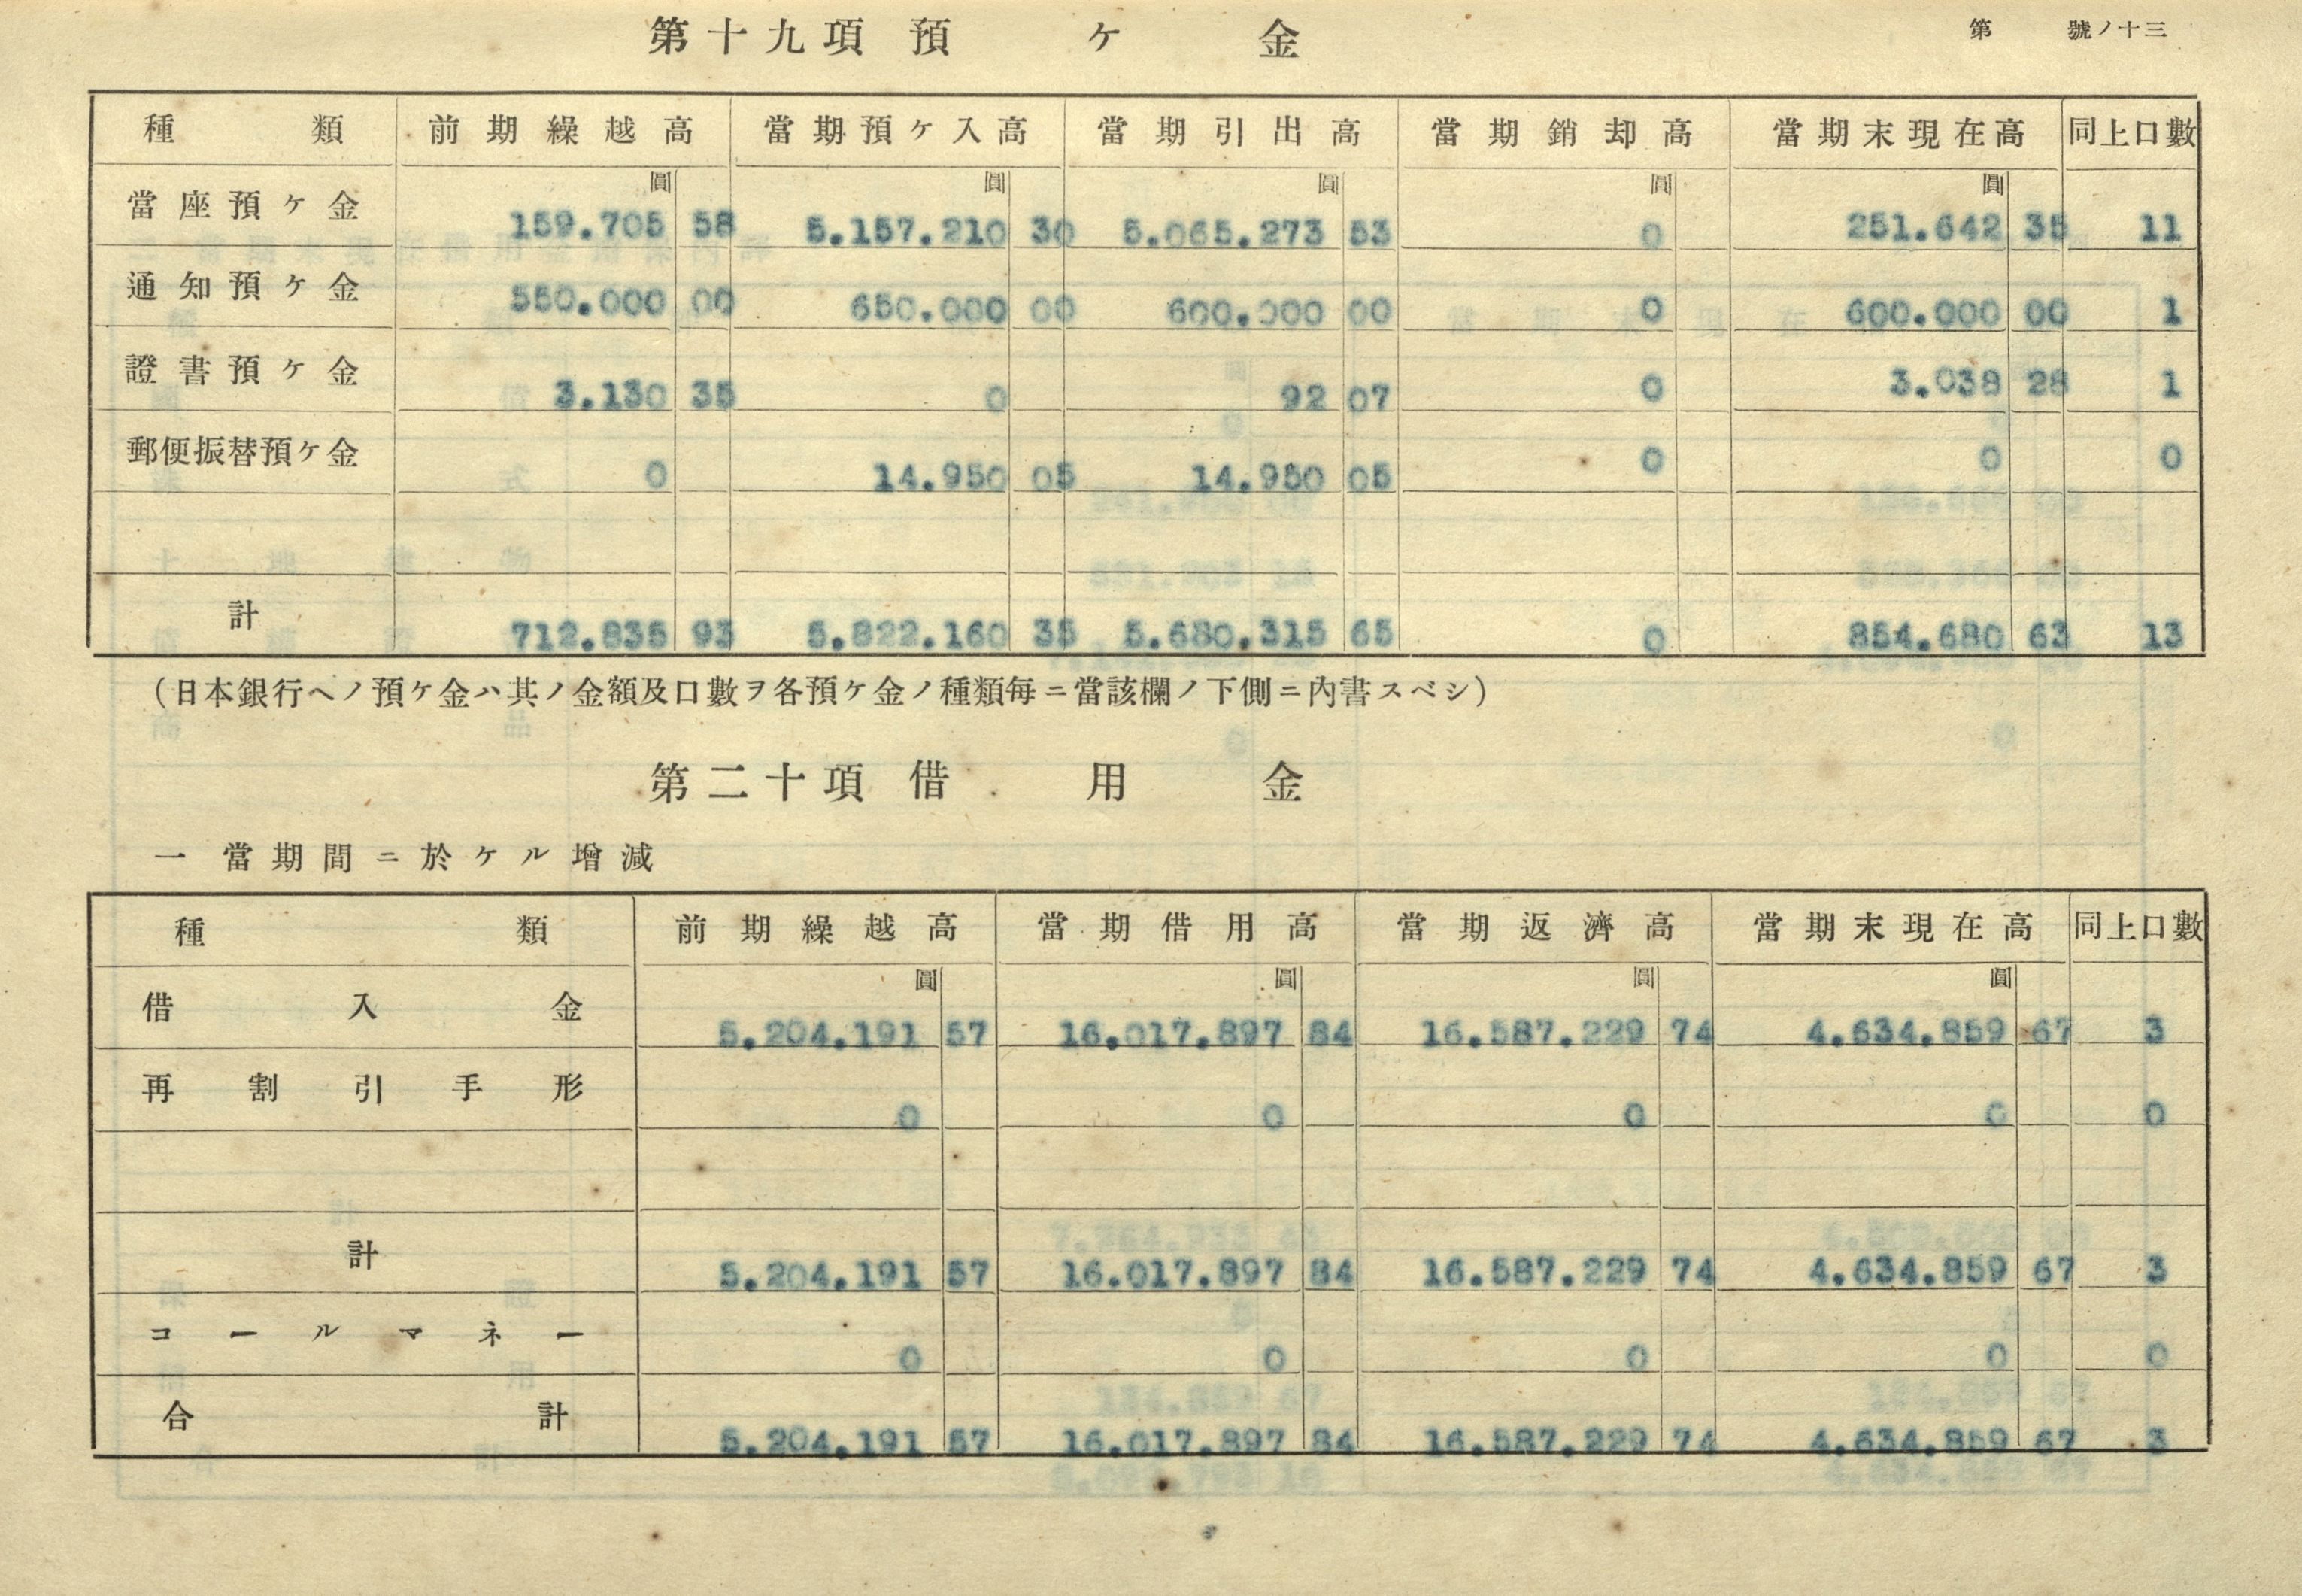 第十九項 預ケ金
第 號ノ十三
種類 前期繰越高 當期預ケ入高 當期引出高 當期銷却高 當期末現在高 同上口數
圓 圓 圓 圓 圓
當座預ケ金 159.705 58 5.157.210 30 5.065.273 53 0 251.642 35 11
通知預ケ金 550.000 00 650.000 00 600.000 00 0 600.000 00 1
證書預ケ金 3.130 35 0 92 07 0 3.038 28 1
郵便振替預ケ金 0 14.950 05 14.950 05 0 0 0
計 712.835 93 5.822.160 35 5.680.315 65 0 854.680 63 13
(日本銀行ヘノ預ケ金ハ其ノ金額及口數ヲ各預ケ金ノ種類每ニ當該欄ノ下側ニ內書スベシ)
第二十項 借用金
一 當期間ニ於ケル增減
種類 前期繰越高 當期借用高 當期返濟高 當期末現在高 同上口數
圓 圓 圓 圓
借入金 5.204.191 57 16.017.897 84 16.587.229 74 4.634.859 67 3
再割引手形 0 0 0 0 0
計 5.204.191 57 16.017.897 84 16.587.229 74 4.634.859 67 3
コールマネー 0 0 0 0 0
合計 5.204.191 57 16.017.897 84 16.587.229 74 4.634.859 67 3